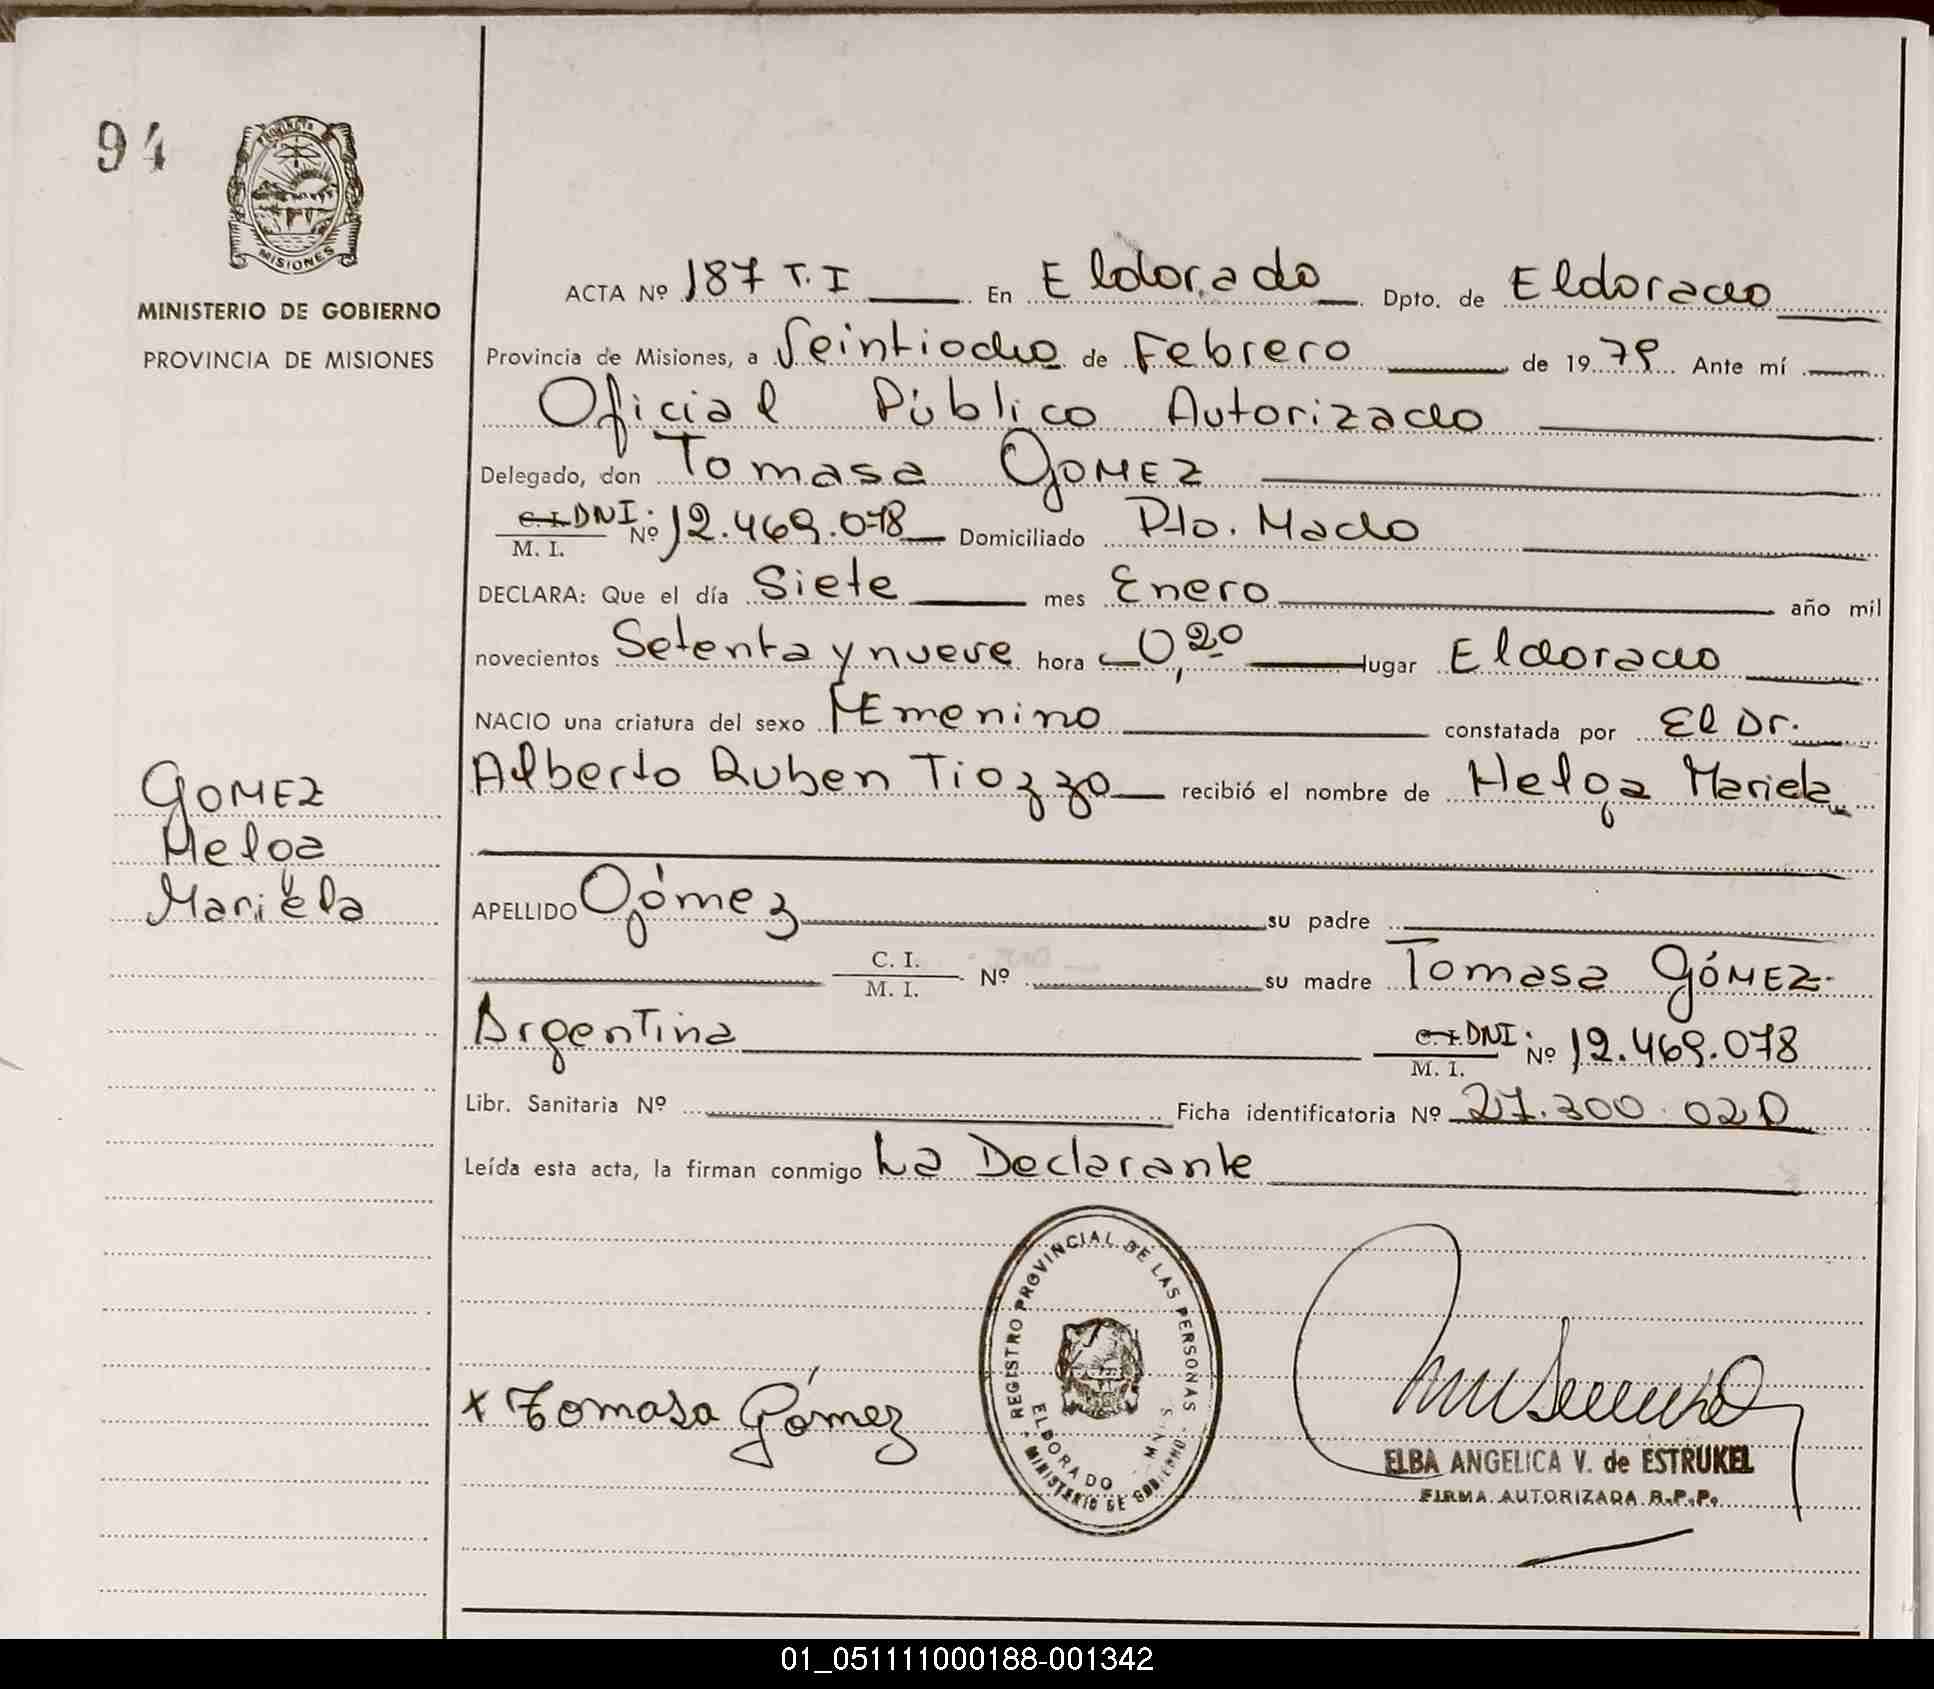 94
PROVINCIA
MISIONES
MINISTERIO DE GOBIERNO
PROVINCIA DE MISIONES
GOMEZ
Helga
Mariela
ACTA Nº 187 T. I En Eldorado Dpto. de Eldorado
Provincia de Misiones, a Veintiocho de Febrero de 1979 Ante mí
Oficial Público Autorizado
Delegado, don Tomasa GOMEZ
C. I. DNI. Nº 12.469.078 Domiciliado Pto. Mado
M. I.
DECLARA: Que el día Siete mes Enero año mil
novecientos Setenta y nueve hora 0,20 lugar Eldorado
NACIO una criatura del sexo FEmenino constatada por El Dr.
Alberto Ruben Tiozzo recibió el nombre de Helga Mariela
APELLIDO Gómez su padre
C. I.
M. I. Nº su madre Tomasa GÓMEZ.
Argentina C. I. DNI. Nº 12.469.078
M. I.
Libr. Sanitaria Nº Ficha identificatoria Nº 27.300.020
Leída esta acta, la firman conmigo La Declarante
REGISTRO PROVINCIAL DE LAS PERSONAS
ELDORADO - MNES.
- MINISTERIO DE GOBIERNO -
x Tomasa Gómez
ELBA ANGELICA V. de ESTRUKEL
FIRMA AUTORIZADA R.P.P.
01_051111000188-001342